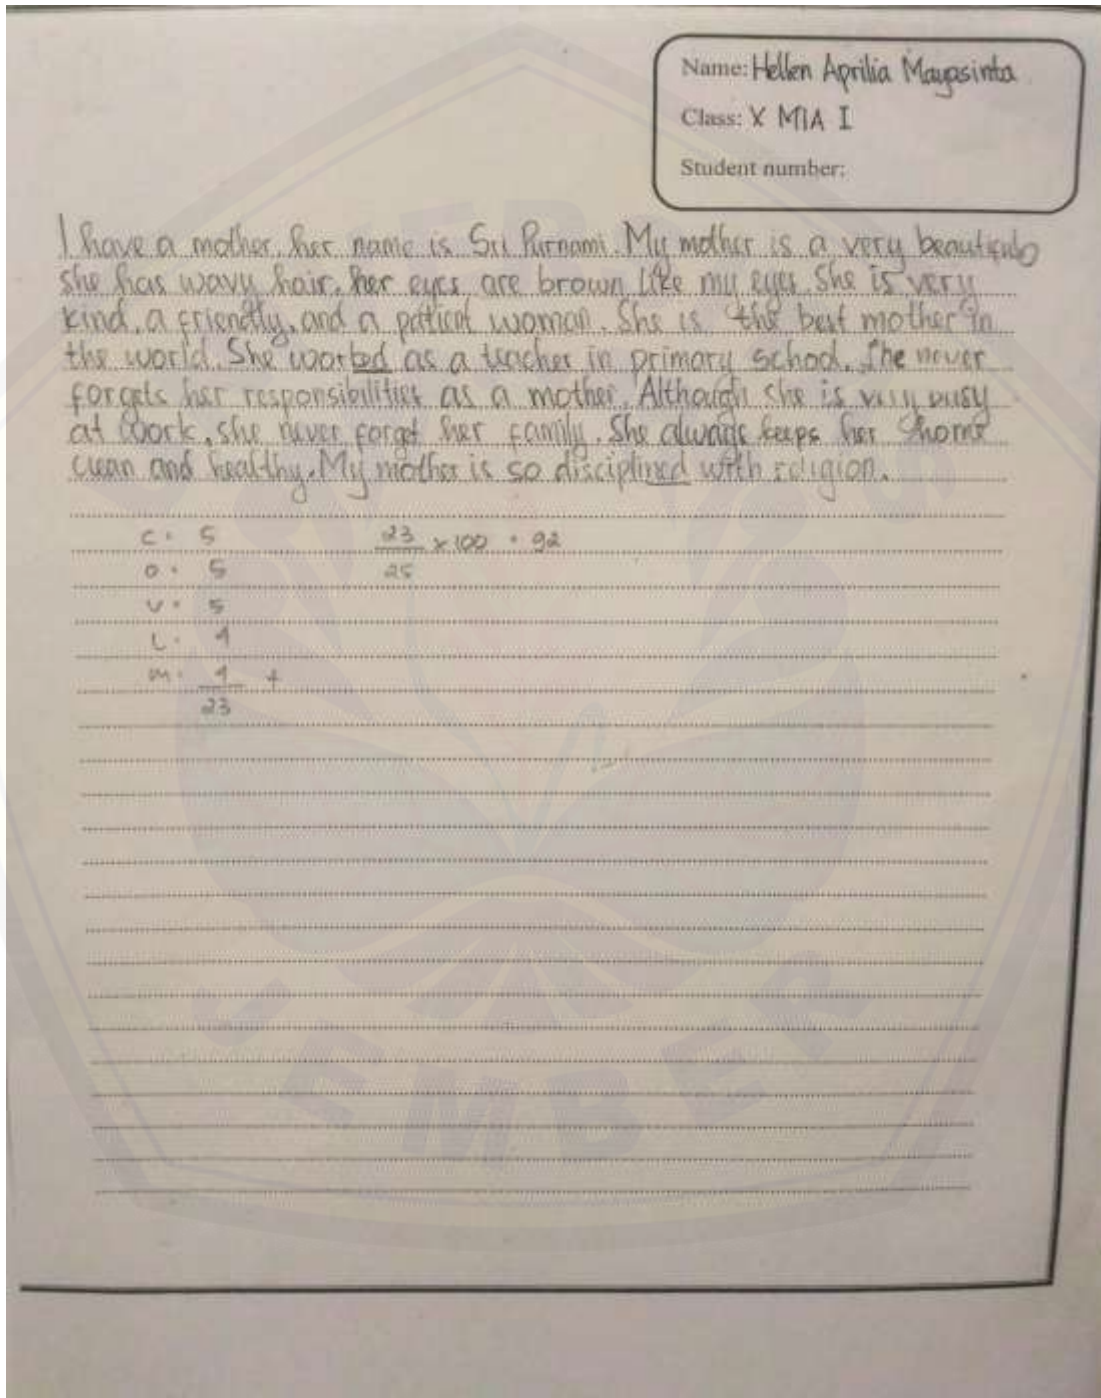 Name: Hellen Aprilia Mayasinta
Class: X MIA I
Student number:
I have a mother, her name is Sri Purnami. My mother is a very beautiful,
she has wavy hair, her eyes are brown like my eyes. She is very
kind, a friendly, and a patient woman. She is the best mother in
the world. She worked as a teacher in primary school. She never
forgets her responsibilities as a mother. Although she is very busy
at work, she never forget her family. She always keeps her home
clean and healthy. My mother is so disciplined with religion.
C = 5
O = 5
V = 5
L = 4
M = 4 +
23
23/25 x 100 = 92
JEMBER